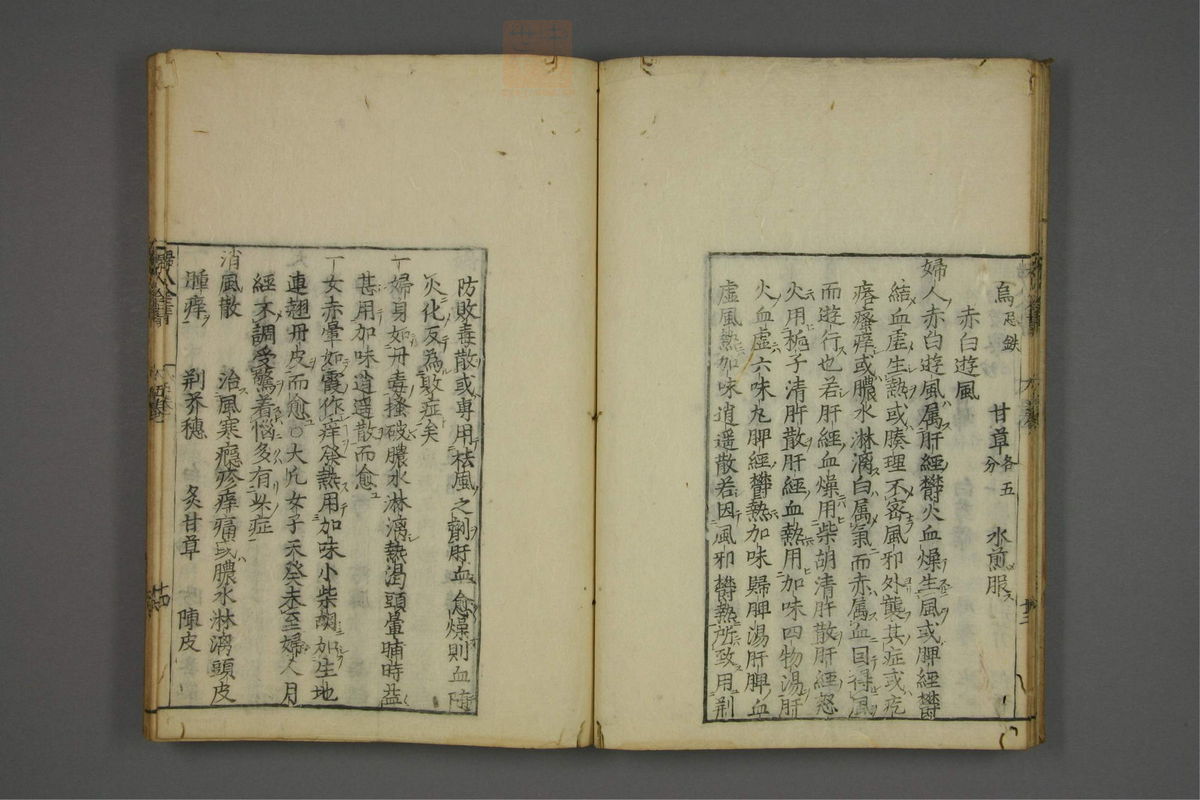 烏 忌鉄 甘草 各五分 水煎服
赤白遊風
婦人赤白遊風属肝經欝火血燥生風或脾經欝
結血虚生熱或腠理不密風邪外襲其症或疙
瘩瘙痒或膿水淋漓白属氣而赤属血因得風
而遊行也若肝經血燥用柴胡清肝散肝經怒
火用栀子清肝散肝經血熱用加味四物湯肝
火血虚六味丸脾經欝熱加味歸脾湯肝脾血
虚風熱加味逍遥散若因風邪欝熱所致用荆
防敗毒散或専用祛風之劑肝血愈燥則血随
火化反為敗症矣
一婦身如丹毒搔破膿水淋漓熱渴頭暈晡時益
甚用加味逍遥散而愈
一女赤暈如霞作痒發熱用加味小柴胡加生地
連翹丹皮而愈○大凡女子天癸未至婦人月
經不調受驚着惱多有此症
消風散 治風寒癮疹痒痛或膿水淋漓頭皮
腫痒 荆芥穗 炙甘草 陳皮